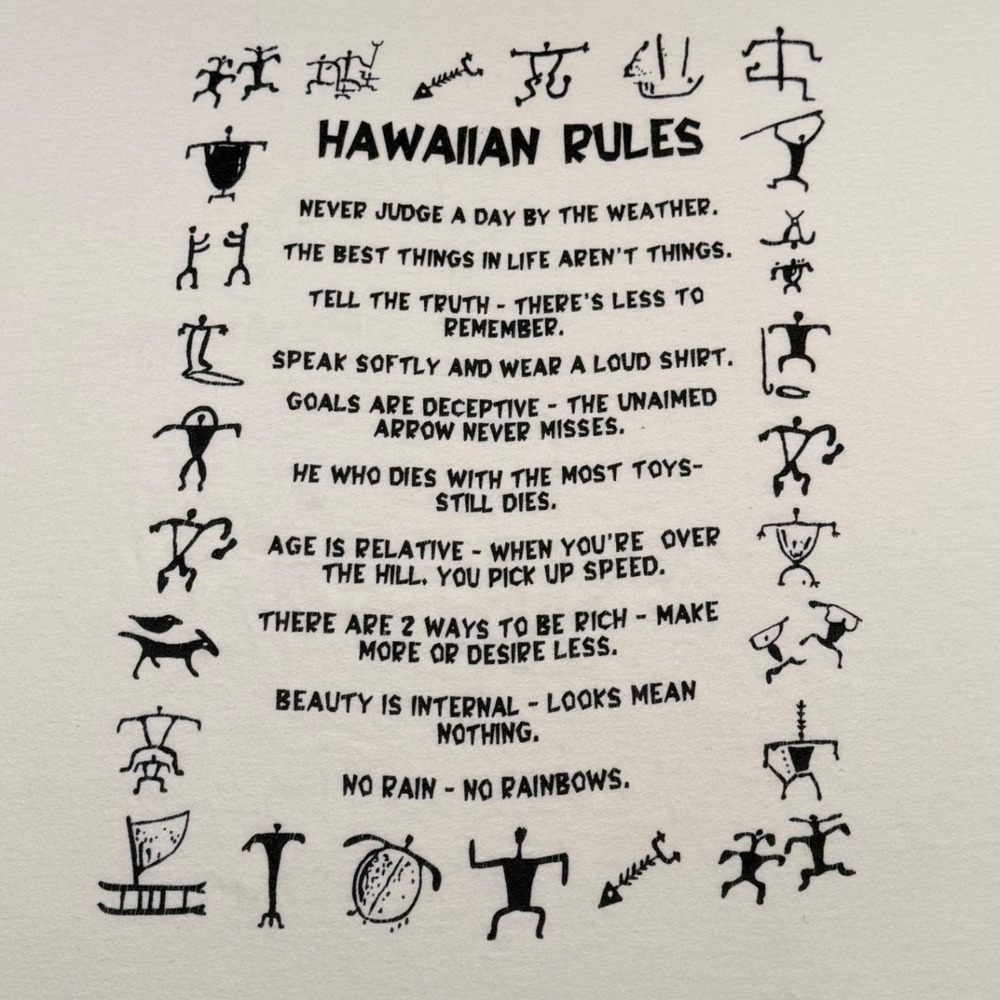 HAWAIIAN RULES
NEVER JUDGE A DAY BY THE WEATHER.
THE BEST THINGS IN LIFE AREN'T THINGS.
TELL THE TRUTH - THERE'S LESS TO
REMEMBER.
SPEAK SOFTLY AND WEAR A LOUD SHIRT.
GOALS ARE DECEPTIVE - THE UNAIMED
ARROW NEVER MISSES.
HE WHO DIES WITH THE MOST TOYS-
STILL DIES.
AGE IS RELATIVE - WHEN YOU'RE OVER
THE HILL. YOU PICK UP SPEED.
THERE ARE 2 WAYS TO BE RICH - MAKE
MORE OR DESIRE LESS.
BEAUTY IS INTERNAL - LOOKS MEAN
NOTHING.
NO RAIN - NO RAINBOWS.